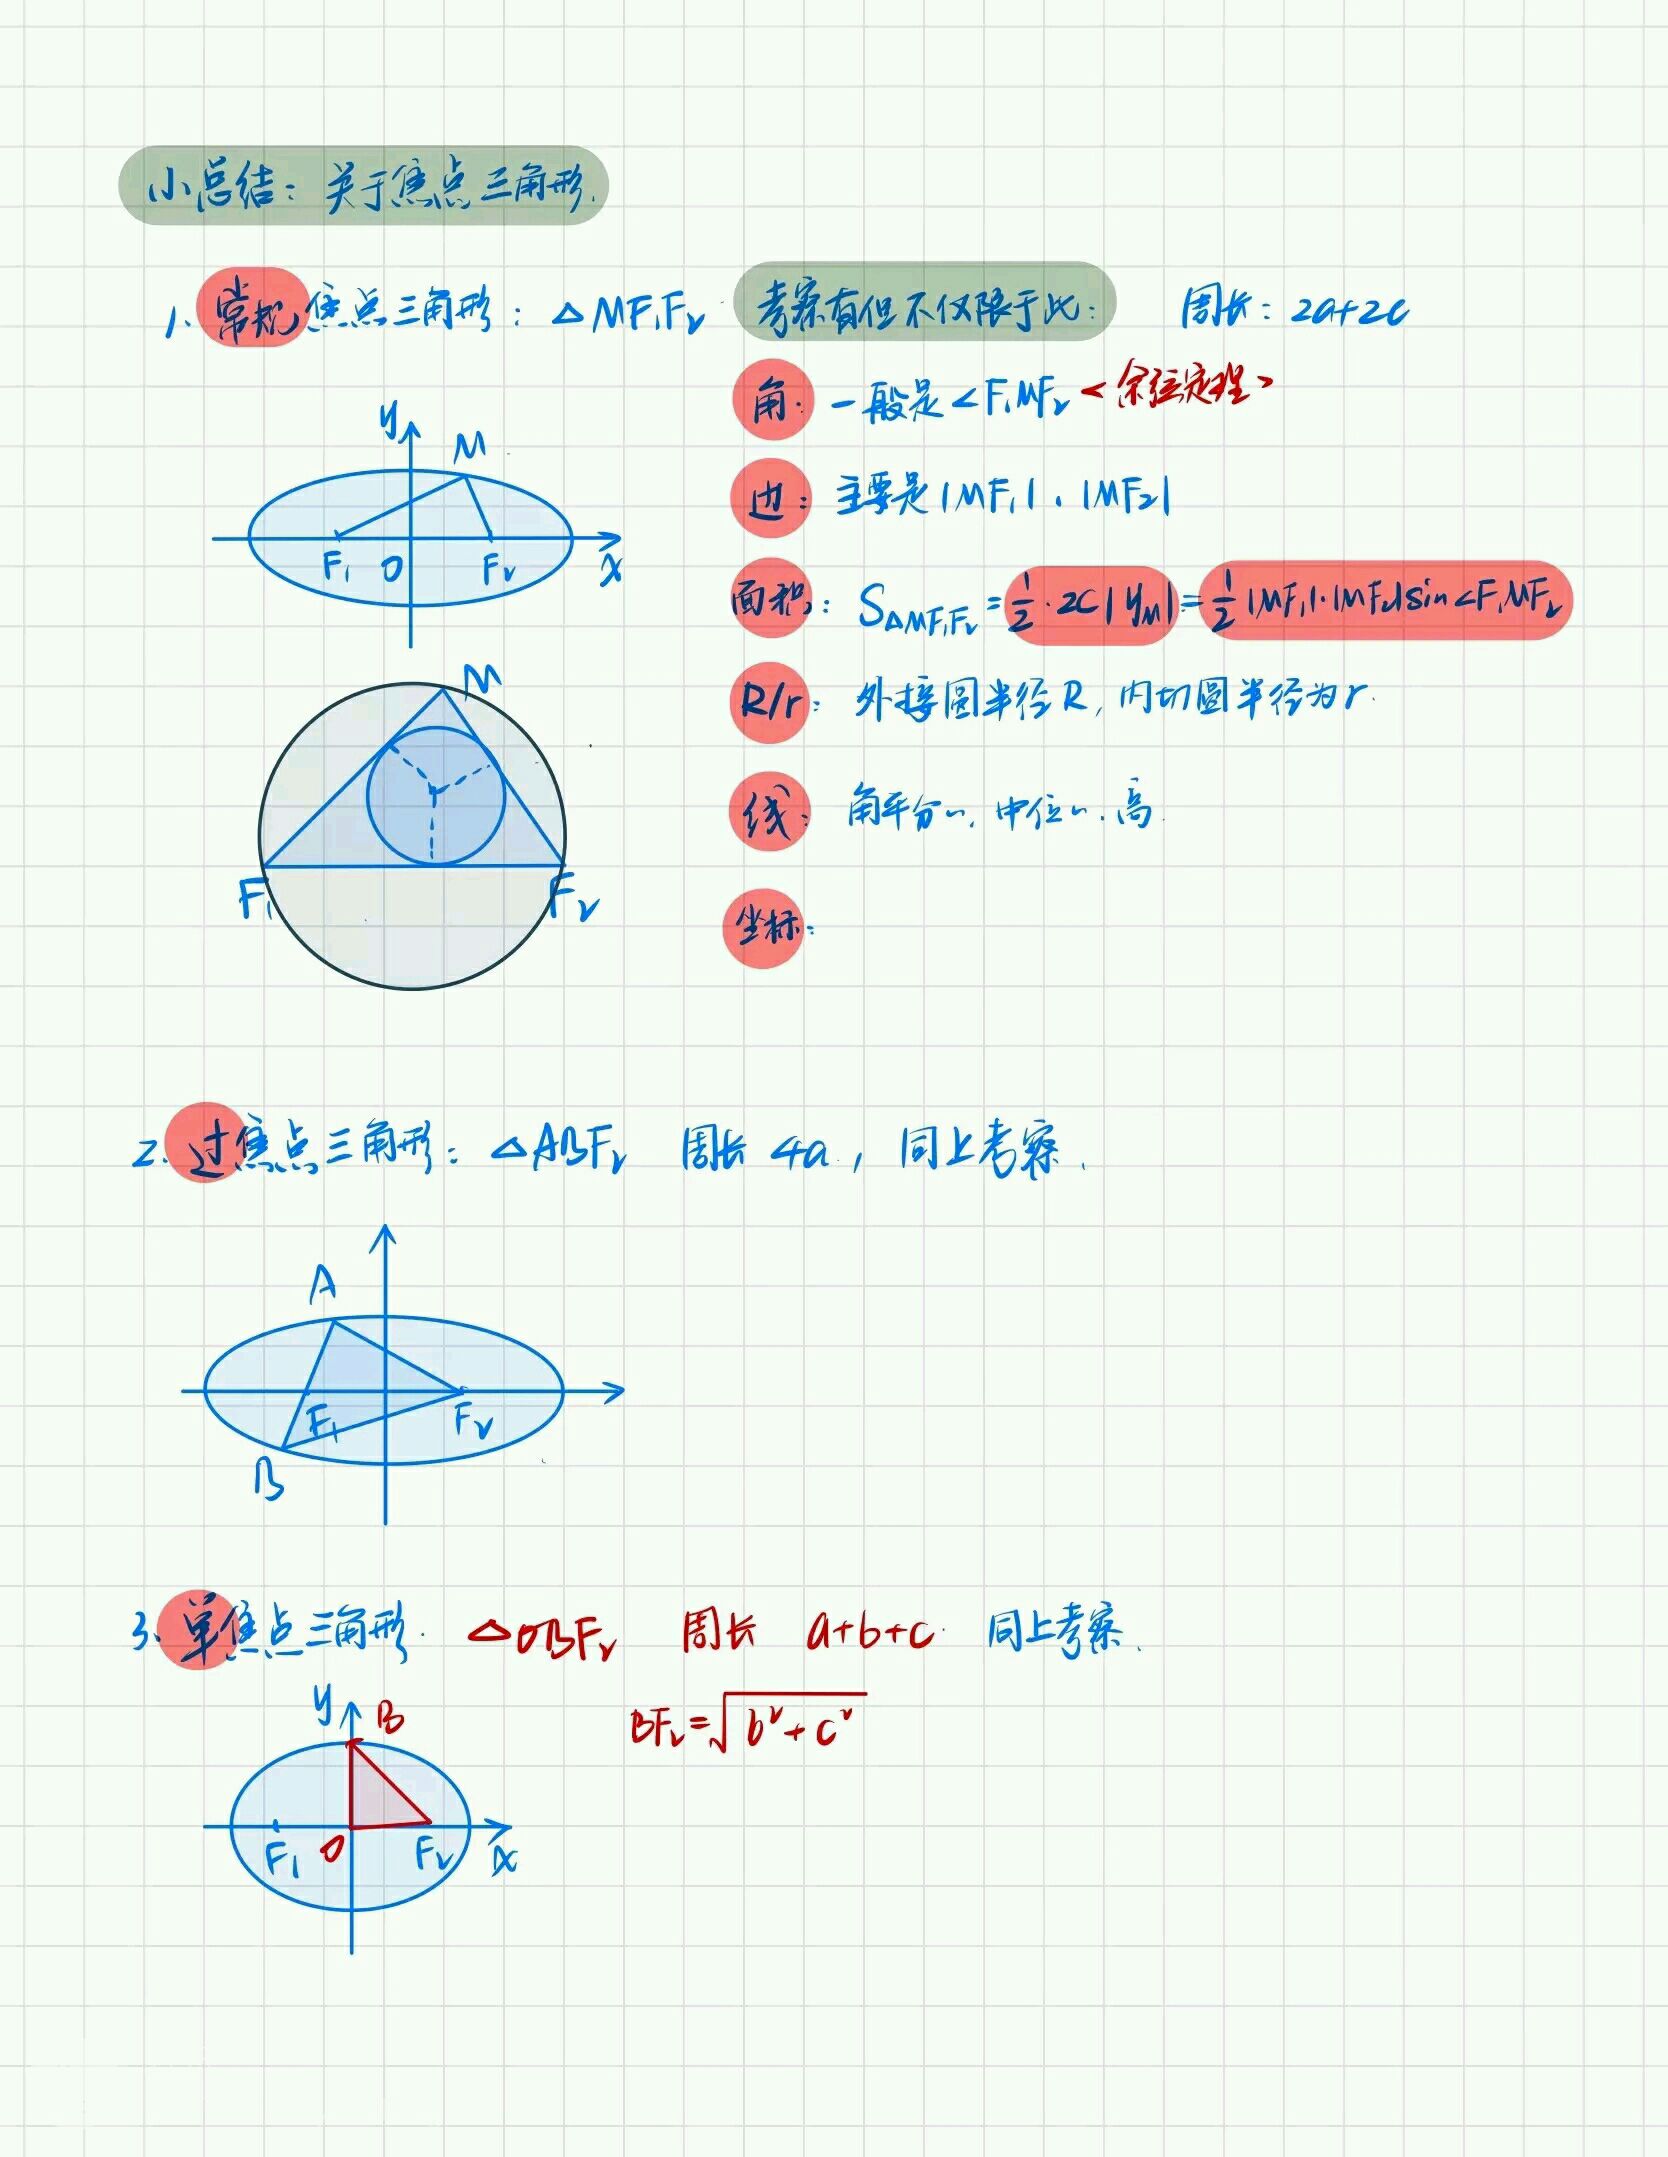 小总结：关于焦点三角形.
1、常规焦点三角形：△MF₁F₂ 考察有但不仅限于此： 周长：2a+2c
角：一般是∠F₁MF₂ <余弦定理>
边：主要是|MF₁|、|MF₂|
y
M
F₁ O F₂ x
面积：S△MF₁F₂ = ½·2c|y_M| = ½|MF₁|·|MF₂|sin∠F₁MF₂
R/r：外接圆半径R，内切圆半径为r.
M
F₁ F₂
线：角平分~、中位~、高.
坐标：
2、过焦点三角形：△ABF₂ 周长 4a，同上考察.
A
F₁ F₂
B
3、单焦点三角形. △OBF₂ 周长 a+b+c. 同上考察.
BF₂=√(b²+c²)
y B
F₁ O F₂ x